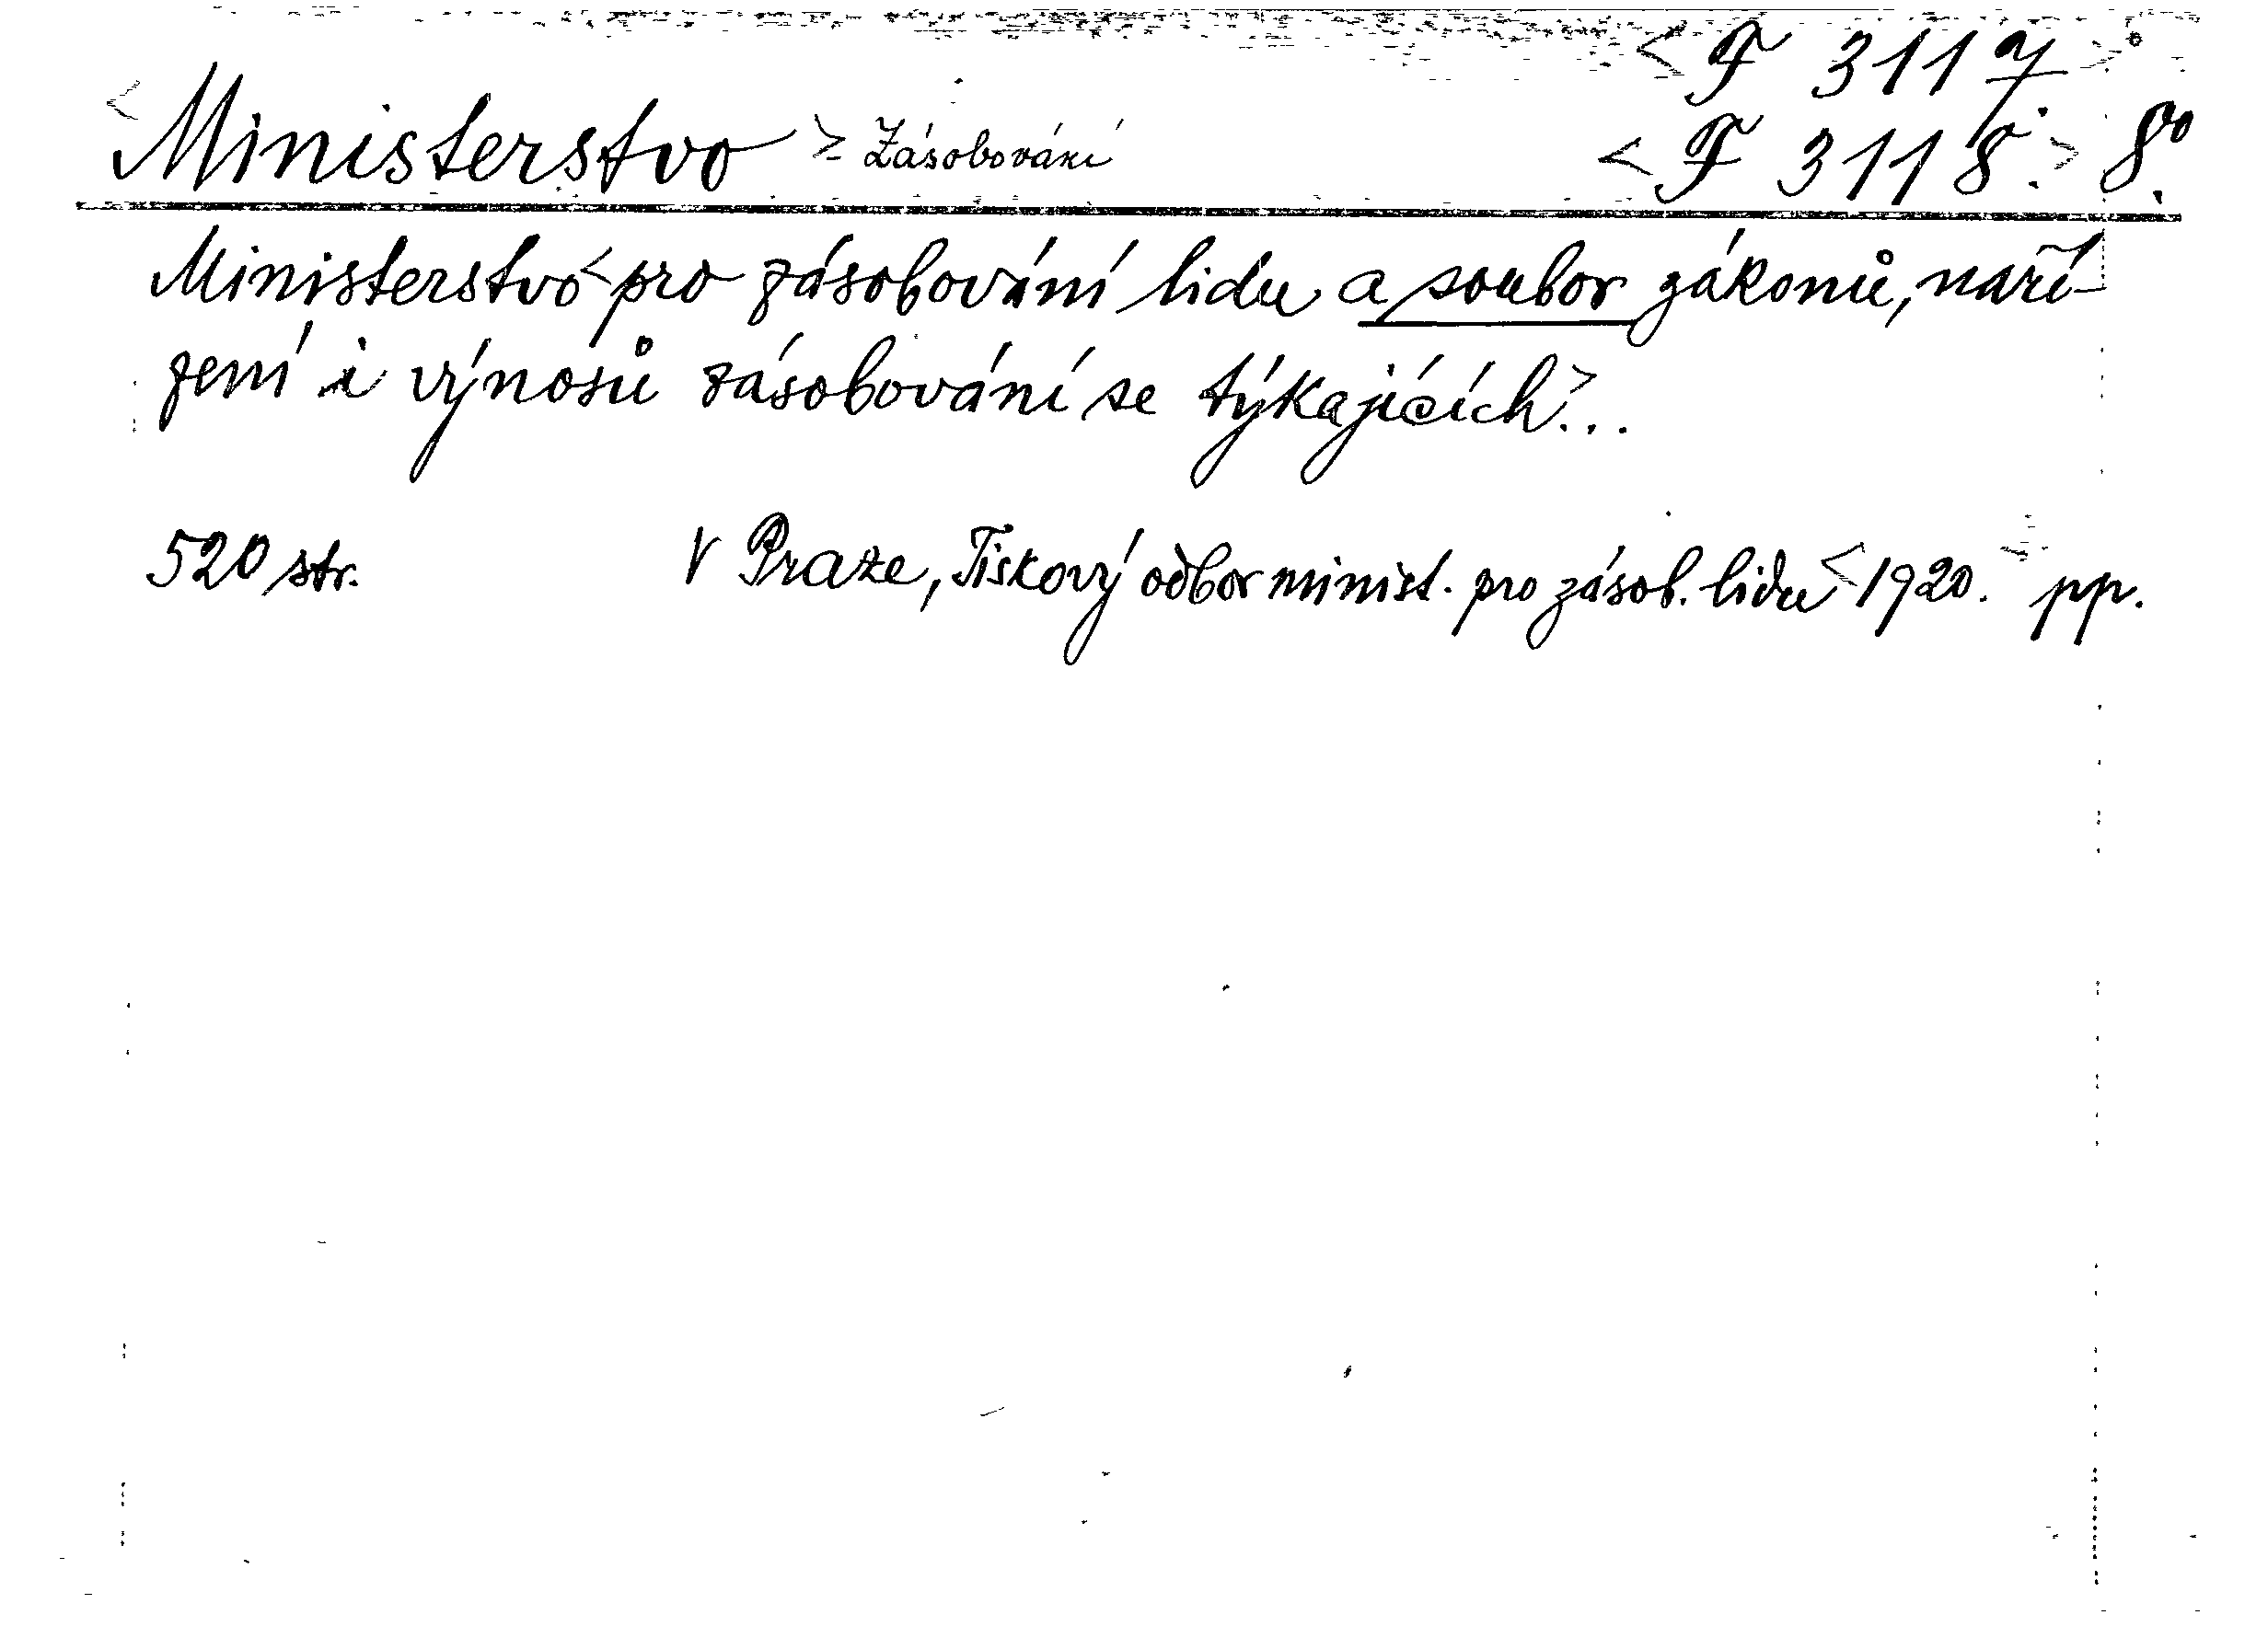 < F 311 a/ >
< Ministerstvo > Zásobování < F 3118. > 8°.
Ministerstvo < pro zásobování lidu a soubor zákonů, naří-
zení i výnosů zásobování se týkajících > ...
520 str. V Praze, Tiskový odbor minist. pro zásob. lidu < 1920. > pp.